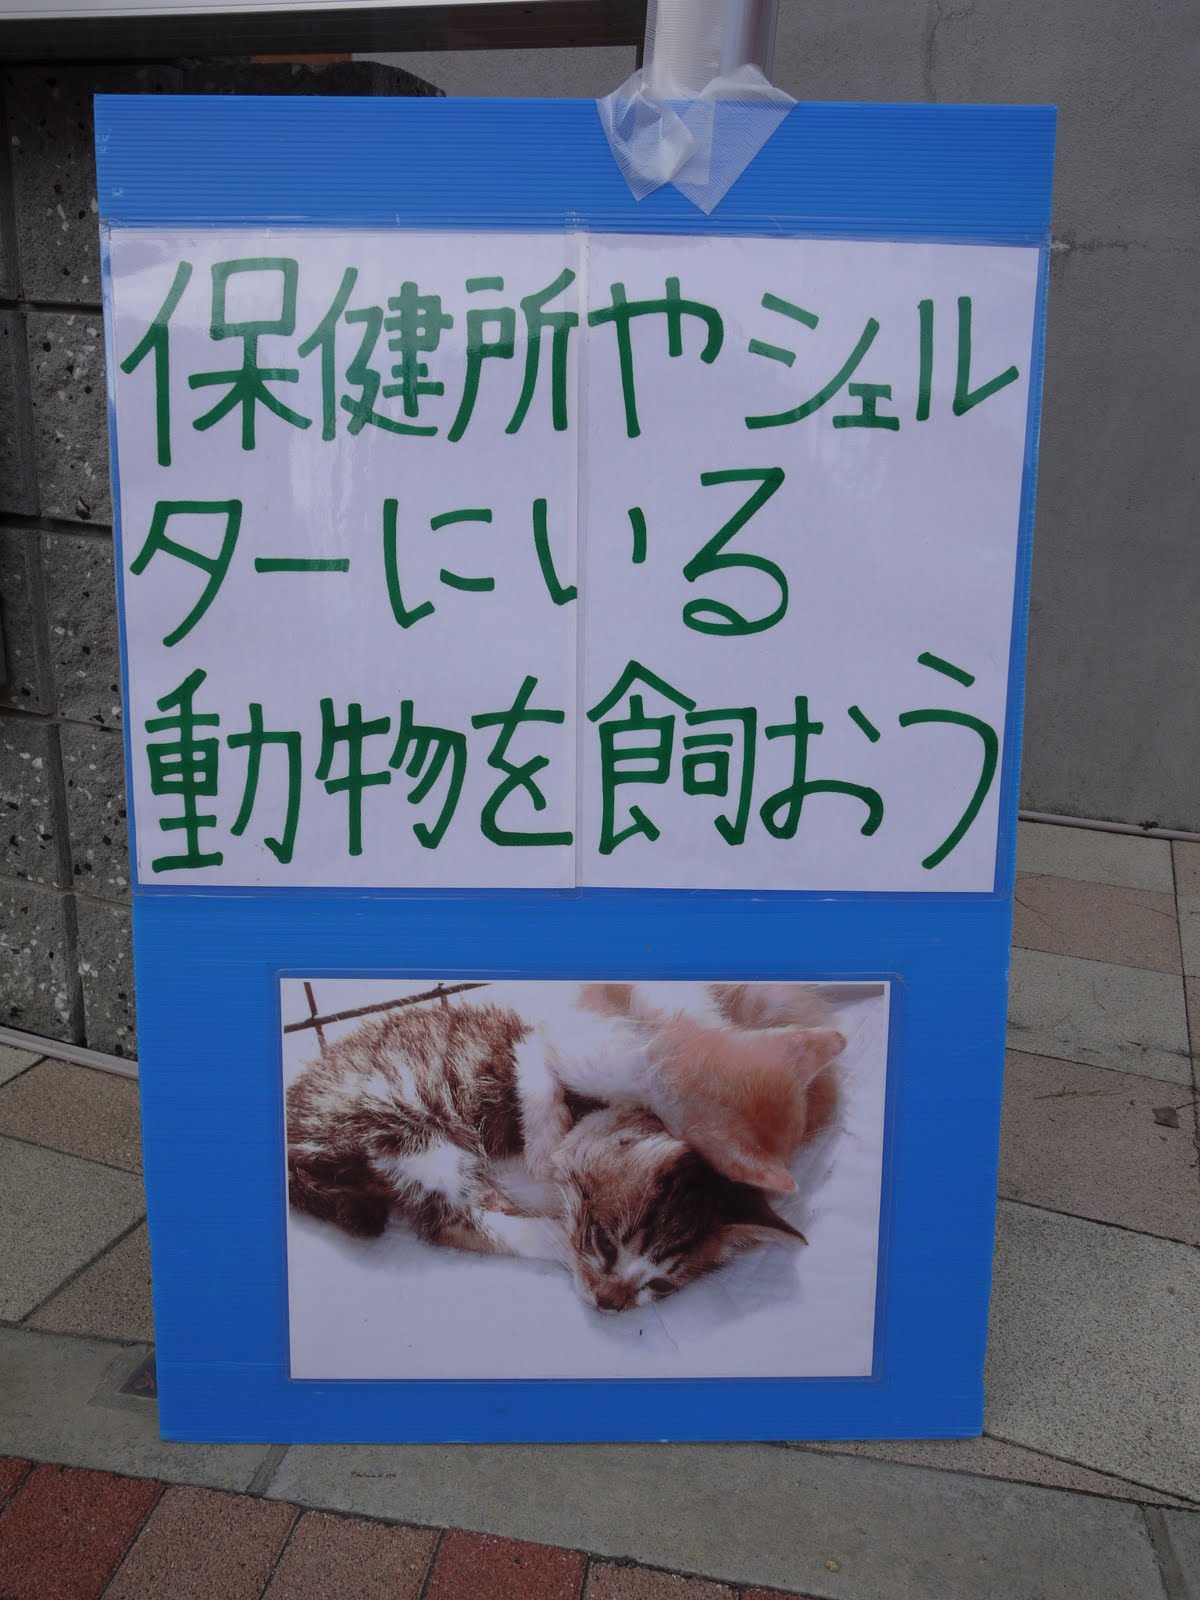 保健所やシェル
ターにいる
動物を飼おう